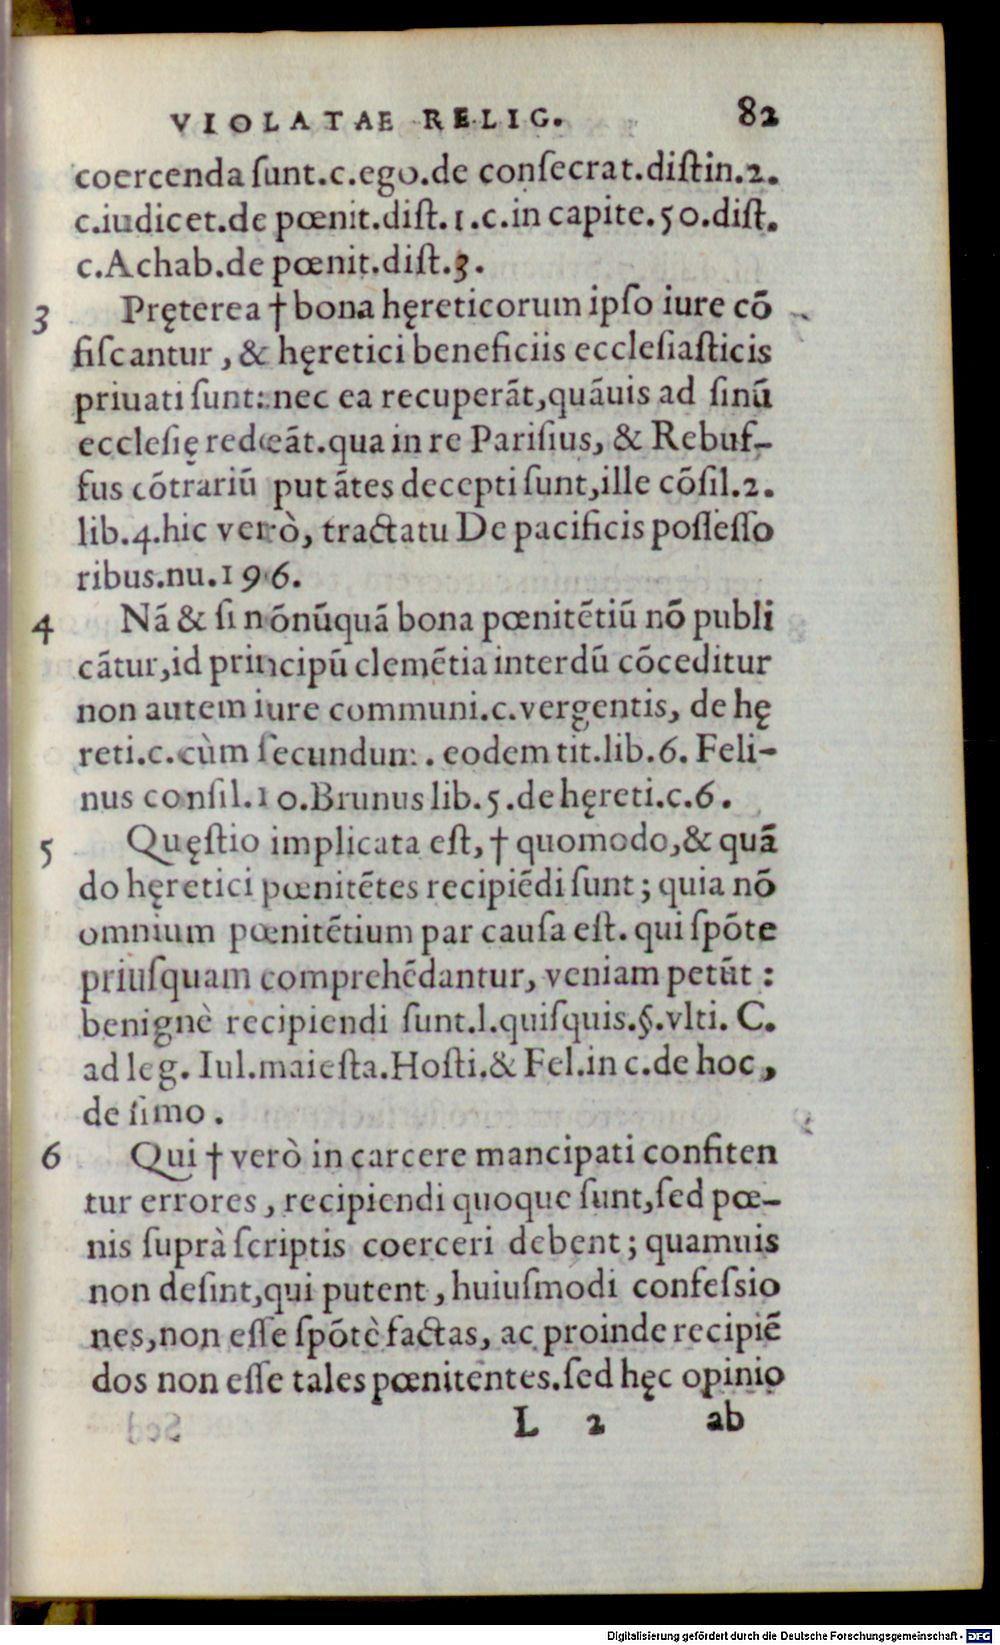 VIOLATAE RELIG. 82
coercenda ſunt.c.ego.de conſecrat.diſtin.2.
c.iudicet.de pœnit.diſt.1.c.in capite.50.diſt.
c.Achab.de pœnit.diſt.3.
3 Pręterea † bona hęreticorum ipſo iure cõ
fiſcantur, & hęretici beneficiis eccleſiaſticis
priuati ſunt: nec ea recuperãt,quãuis ad ſinũ
eccleſię redeãt.qua in re Pariſius, & Rebuf-
fus cõtrariũ putãtes decepti ſunt,ille cõſil.2.
lib.4.hic verò, tractatu De pacificis poſſeſſo
ribus.nu.196.
4 Nã & ſi nõnũquã bona pœnitẽtiũ nõ publi
cãtur,id principũ clemẽtia interdũ cõceditur
non autem iure communi.c.vergentis, de hę
reti.c.cùm ſecundum. eodem tit.lib.6. Feli-
nus conſil.10.Brunus lib.5.de hęreti.c.6.
5 Quęſtio implicata eſt, † quomodo,& quã
do hęretici pœnitẽtes recipiẽdi ſunt; quia nõ
omnium pœnitẽtium par cauſa eſt. qui ſpõte
priuſquam comprehẽdantur, veniam petũt :
benignè recipiendi ſunt.l.quiſquis.§.vlti. C.
ad leg. Iul.maieſta.Hoſti.& Fel.in c.de hoc,
de ſimo.
6 Qui † verò in carcere mancipati confiten
tur errores, recipiendi quoque ſunt,ſed pœ-
nis ſuprà ſcriptis coerceri debent; quamuis
non deſint,qui putent, huiuſmodi confeſsio
nes,non eſſe ſpõtè factas, ac proinde recipiẽ
dos non eſſe tales pœnitentes.ſed hęc opinio
L 2 ab
Digitalisierung gefördert durch die Deutsche Forschungsgemeinschaft - DFG